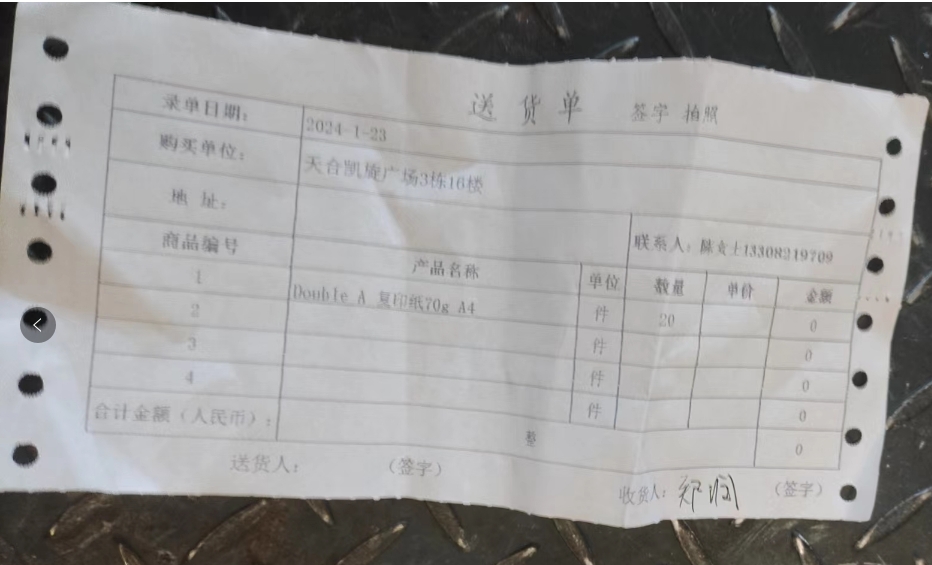 送货单 签字 拍照
录单日期: 2024-1-23
购买单位: 天合凯旋广场3栋16楼
地 址:
联系人: 陈女士13308219709
商品编号 产品名称 单位 数量 单价 金额
1 Double A 复印纸70g A4 件 20 0
2 件 0
3 件 0
4 件 0
合计金额(人民币): 整 0
送货人: (签字) 收货人: 郑 (签字)